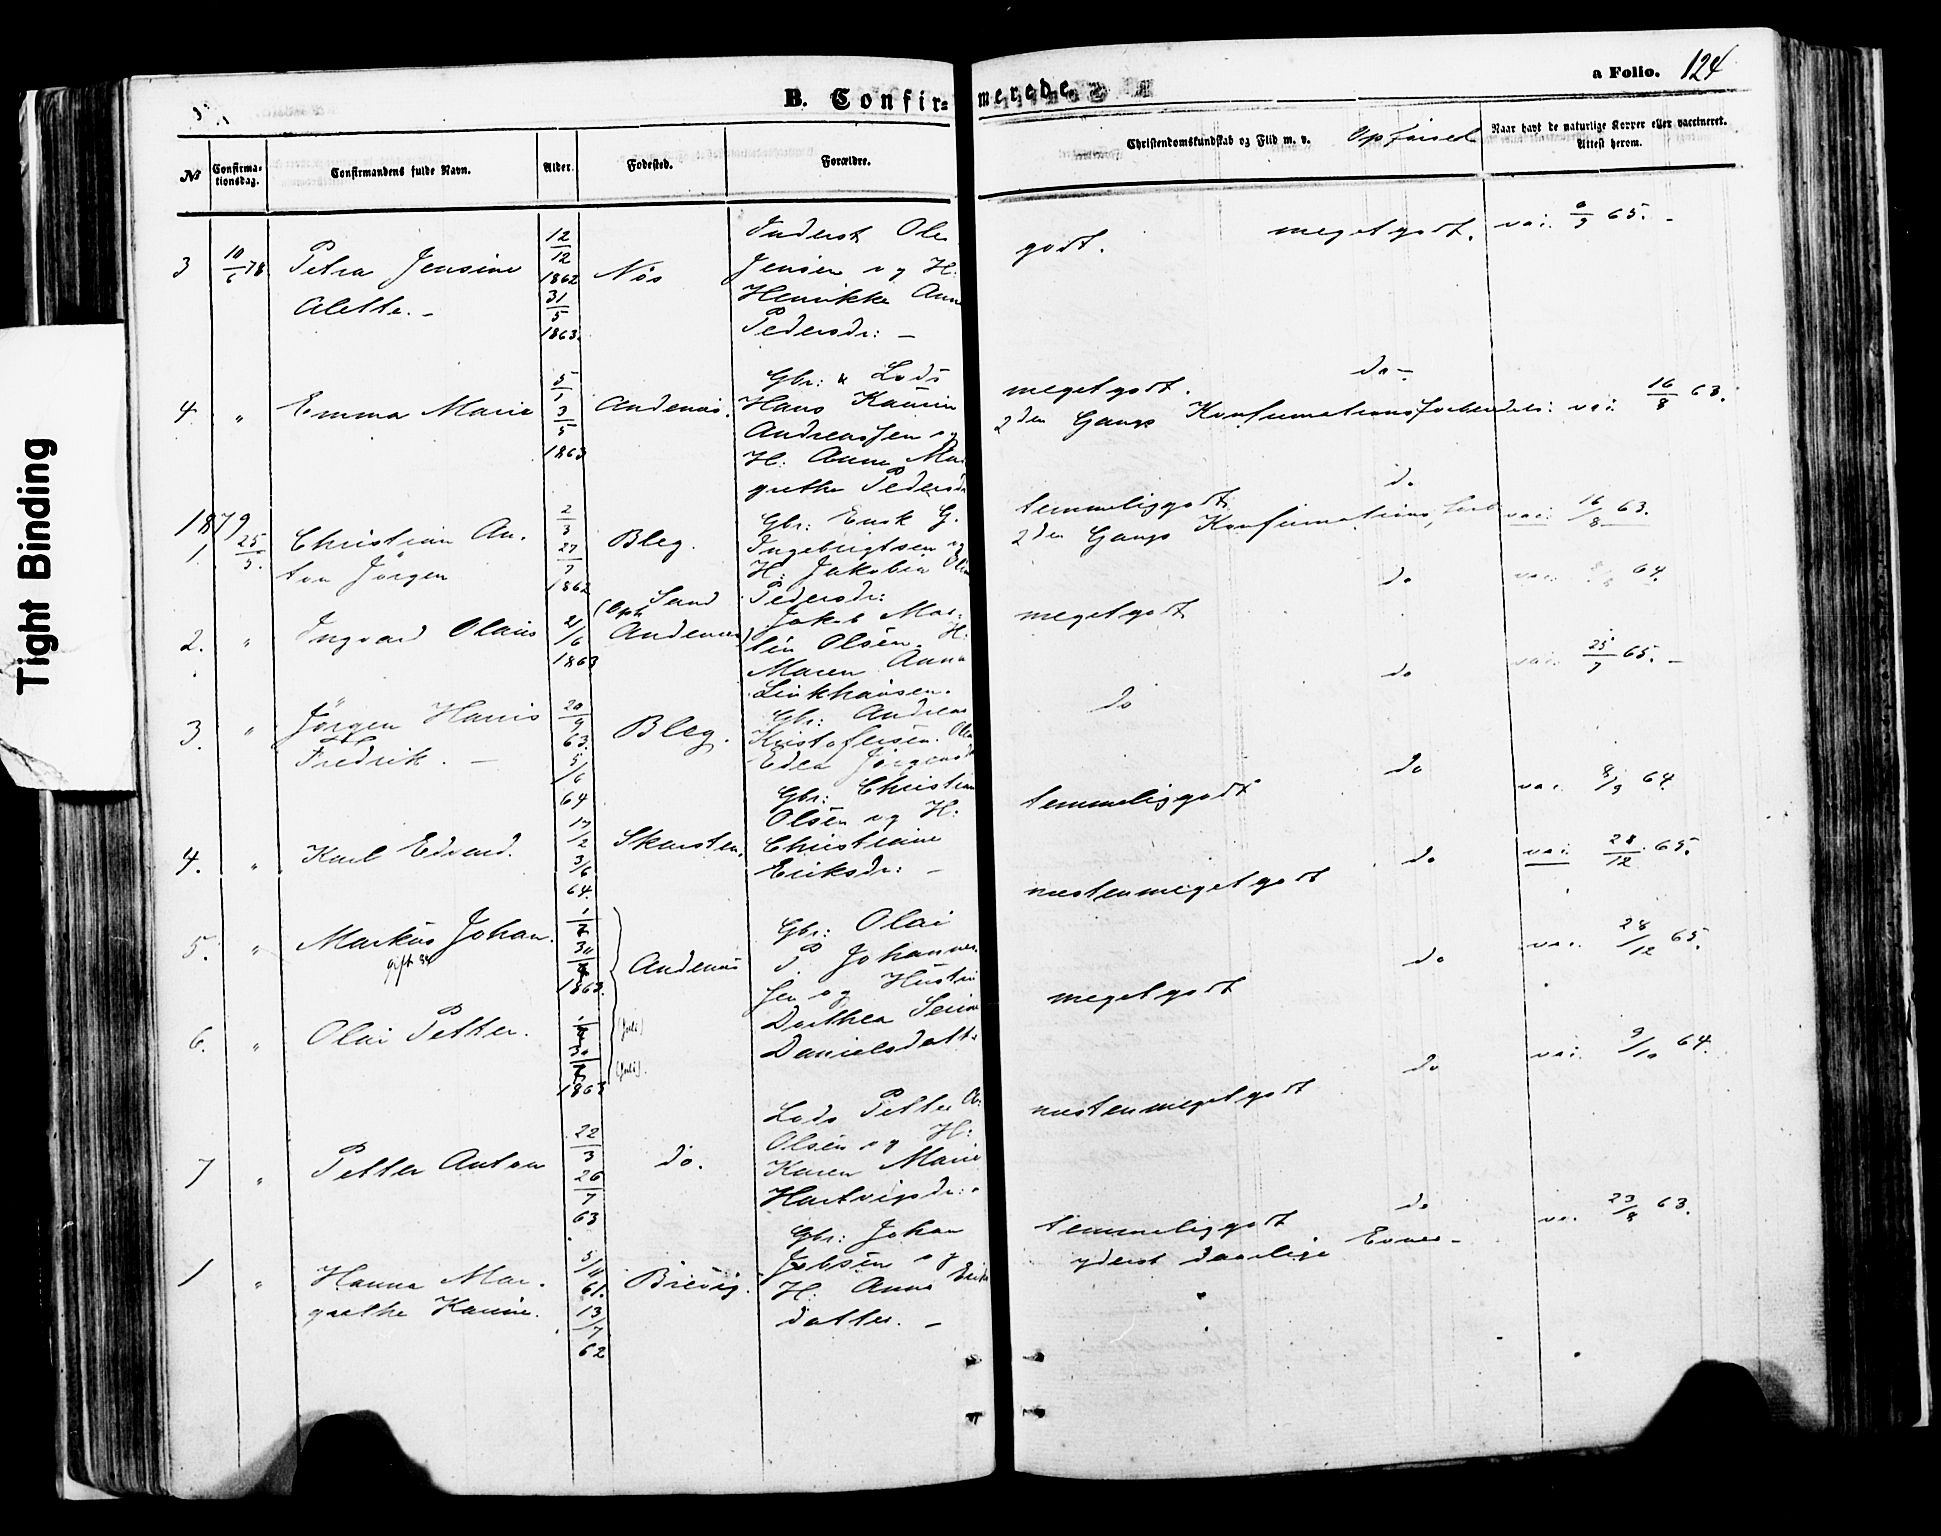 Tight Binding
B. Confir-merede.
a Folio. 124
No
Confirma-tionsdag.
Confirmandens fulde Navn.
Alder.
Fødested.
Forældre.
Christendomskundskab og Flid m. v. Opførsel
Naar havt de naturlige Kopper eller vaccineret. Attest herom.
3 10/6 78 Petra Jensine
Alette. -
12/12
1862
31/5
1863.
Nös
Inderst Ole
Jensen og H:
Henrikke Anna
Pedersdr: -
godt.
megetgodt.
vai. 6/9 65. -
4 " Emma Marie
5/1
3/5
1863
Andenæs.
Gbr: & Lods
Hans Kaurin
Andreassen og
H: Anna Mar
grethe Pedersd
megetgodt.
2den Gangs Konfirmationsforberedels:
do -
vai. 16/8 63.
1879
1. 25/5. Christian An.
ton Jörgen
2/3
27/7
1862
Bleg.
Gbr: Enok G.
Ingebrigtsen og
H: Jakobia Olin
Pedersdr:
temmeliggodt.
2den Gangs Konfirmations, forb
do
vai. 16/8 63.
2. " Ingvard Olaus
21/6
1863
Sand
(Oph
Andenæs)
Jakob Mar-
tin Olsen. H:
Maren Anna
Linkhausen.
megetgodt
do
vai. 64.
3. " Jörgen Hans
Fredrik. -
20/9
63.
5/6
64
Bleg.
Gbr: Andreas
Kristofersen. Olin
Edea Jörgensd
do
do
vai. 25/7 65. -
4. " Karl Edvard.
17/12
3/6
64.
Skarsten.
Gbr: Christian
Olsen og H:
Christiane
Eriksdr: -
temmeliggodt
do
vai. 8/9 64.
5. " Markus Johan.
gift 88
1863.
Andenæs
Gbr: Olai
P. Johannes
sen og Hustru
Dorthea Serine
Danielsdatt.
næstenmegetgodt
do
vai: 28/12 65.
6. " Olai Petter.
1863
(Juli)
(Juli).
megetgodt
do
vai. 28/12 65.
7 " Petter Anton
22/3
26/7
63
do.
Lods Petter A:
Olsen og H:
Karen Marie
Hartvigsdr:
næstenmegetgodt
do
vai. 9/10 64.
1 " Hanna Mar-
grethe Karine.
5/11
61.
13/7
62
Breivig.
Gbr: Johan
Jobsen og
H: Anna Erik
datter. -
temmeliggodt
yderst daarlige Evner -
do
va. 23/8 63.